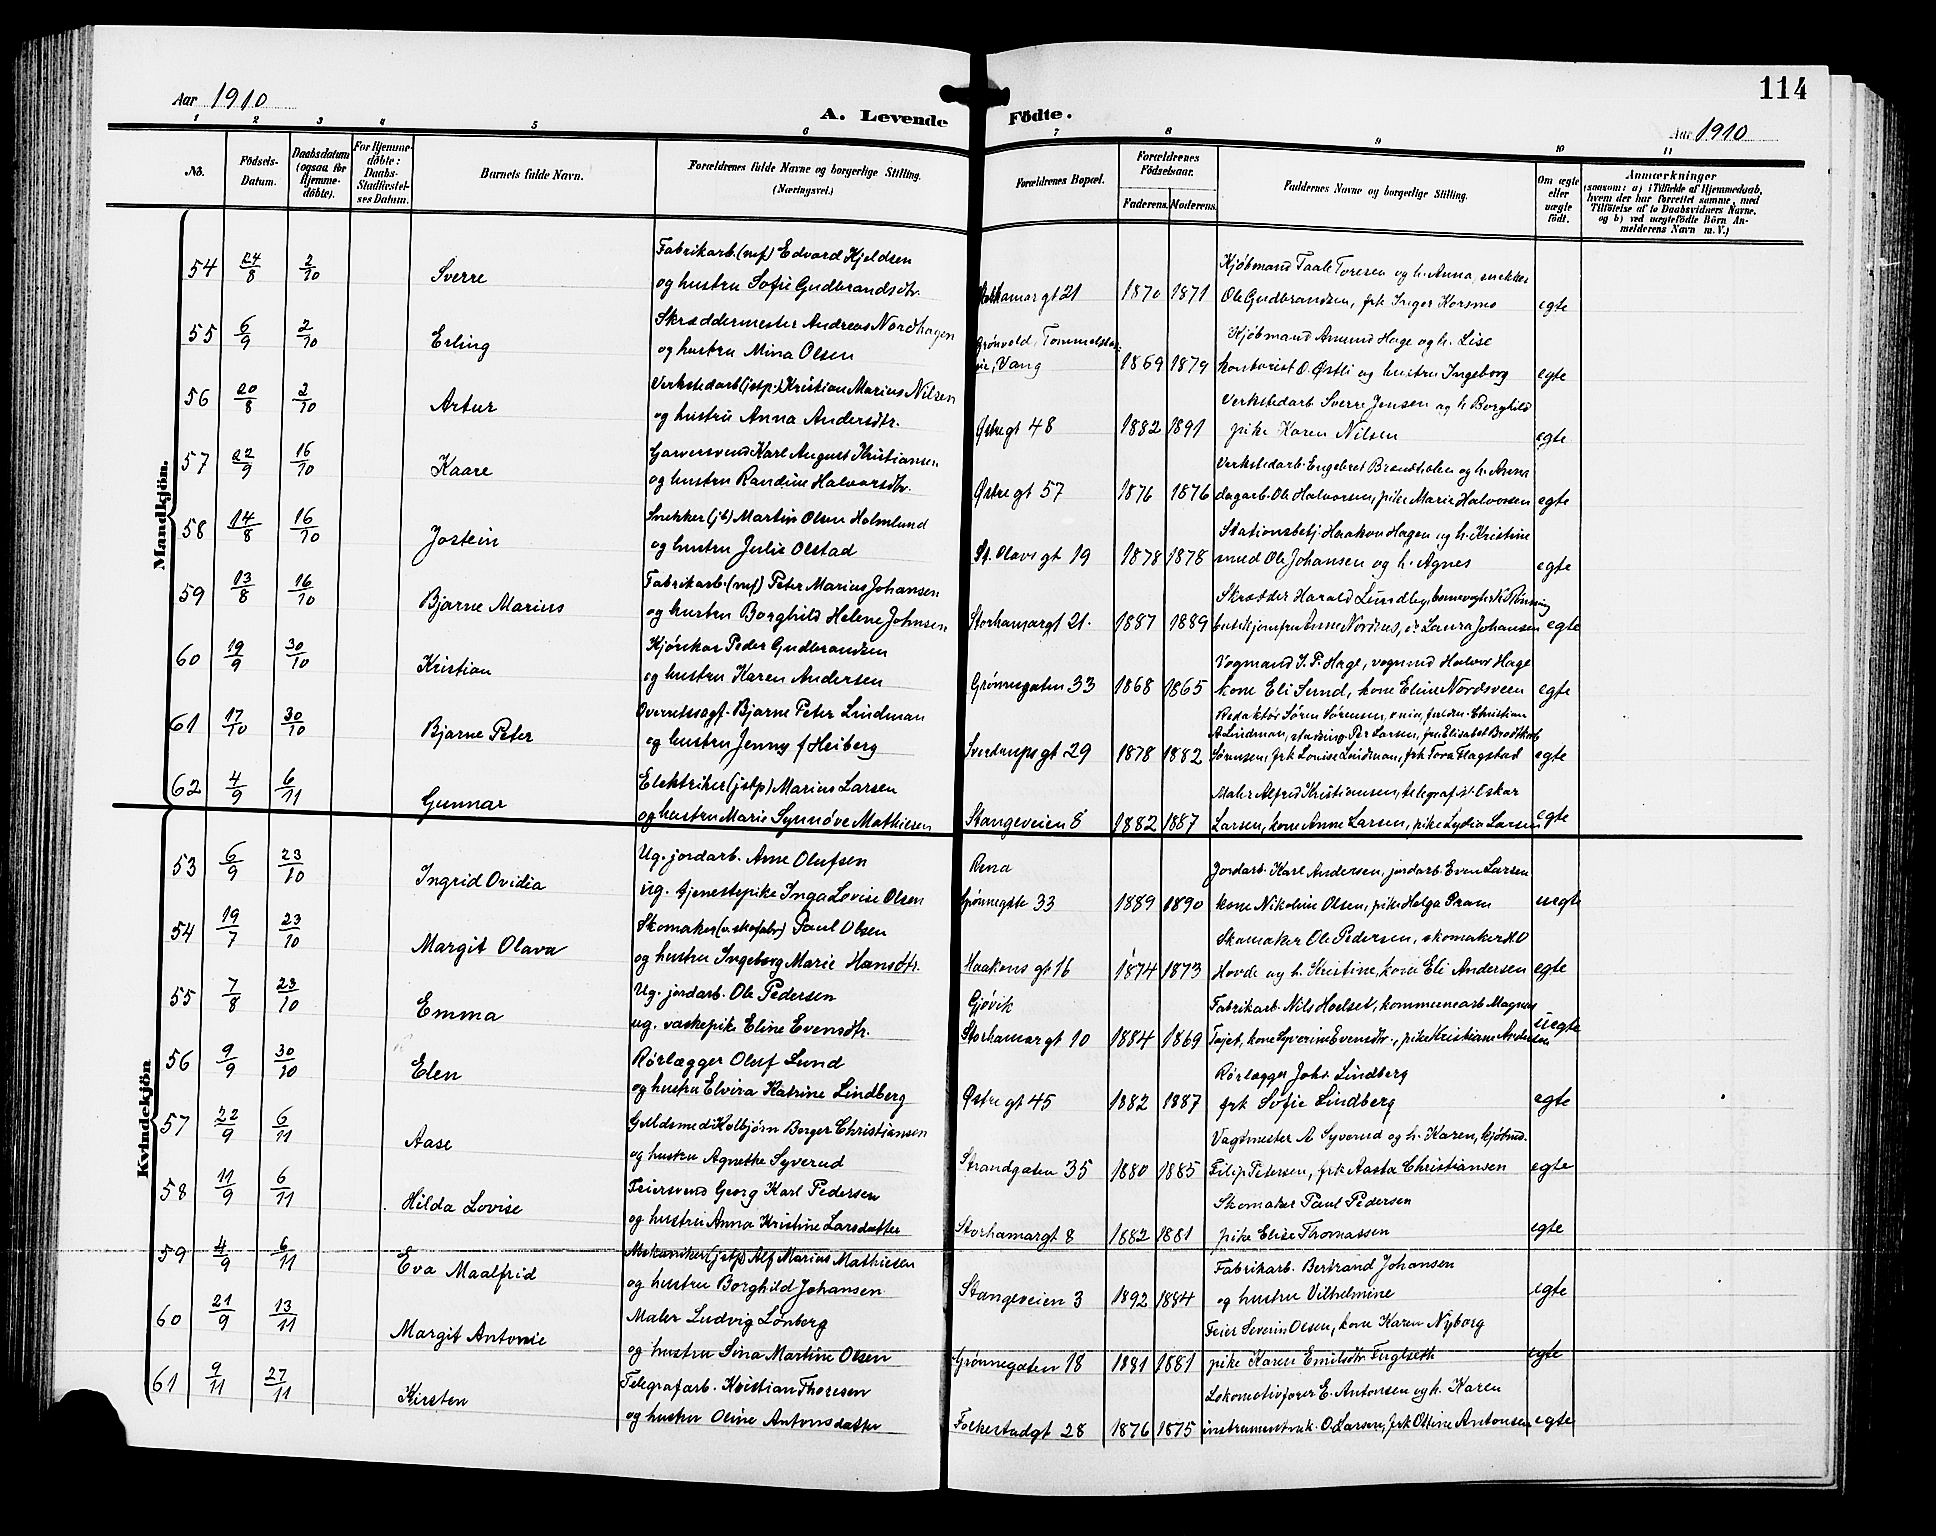 114
Aar 1910
A. Levende Födte.
Aar 1910
1 2 3 4 5 6 7 8 9 10 11
No.
Födsels-Datum.
Daabsdatum (ogsaa for Hjemmedöbte).
For Hjemmedöbte: Daabs-Stadfæstelses Datum.
Barnets fulde Navn.
Forældrenes fulde Navne og borgerlige Stilling.
(Næringsvei.)
Forældrenes Bopæl.
Forældrenes Födselsaar.
Faderens. Moderens.
Faddernes Navne og borgerlige Stilling.
Om ægte eller uægte født.
Anmærkninger
(saasom: a) i Tilfælde af Hjemmedaab,
hvem der har forrettet samme, med
Tilføielse af to Daabsvidners Navne,
og b) ved uægtefødte Börn Anmelderens Navn m. V.)
Mandkjön.
54 24/8 2/10 Sverre Fabrikarb. (mf) Edvard Kjeldsen
og hustru Sofie Gudbrandsdtr. Storhamargt 21 1870 1871 Kjöbmand Taale Toresen og h. Anna, snekker
Ole Gudbrandsen, frk Inger Korsmo egte
55 6/9 2/10 Erling Skræddermester Andreas Nordhagen
og hustru Mina Olsen Grønvold, Tommelstad
, Vang 1869 1879 Kjöbmand Amund Hage og h. Lise
kontorist O. Østli og hustru Ingeborg egte
56 20/8 2/10 Artur Verkstedarb (jstp.) Kristian Marius Nilsen
og hustru Anna Andersdtr. Østregt 48 1882 1891 Verkstedarb Sverre Jensen og h. Borghild
pike Karen Nilsen egte
57 22/9 16/10 Kaare Garversvend Karl August Kristiansen
og hustru Randine Halvorsdtr. Østregt 57 1876 1876 Verkstedarb. Engebret Brandholen og h. Anna
dagarb. Ole Halvorsen, pike Marie Halvorsen egte
58 14/8 16/10 Jostein Snekker (jb) Martin Olsen Holmlund
og hustru Julie Olstad St. Olavs gt 19 1878 1878 Stationsbetj. Haakon Hagen og h. Kristine
smed Ole Johansen og h. Agnes egte
59 13/8 16/10 Bjarne Marius Fabrikarb. (mf) Peter Marius Johansen
og hustru Borghild Helene Johnsen Storhamargt 21. 1887 1889 Skrædder Harald Lundby, banevogter K. Rønning
Anne Nordnes, do Laura Johansen egte
60 19/9 30/10 Kristian Kjørekar Peder Gudbrandsen
og hustru Karen Andersen Grønnegaten 33 1868 1865 Vogmand I. P. Hage, vogmd Halvor Hage
kone Eli Smud, kone Eline Nordsveen egte
61 17/10 30/10 Bjarne Peter Overretssagf. Bjarne Peter Lindman
og hustru Jenny f Heiberg Sverdrups gt 29 1878 1882 Redaktør Søren Sørensen, Christian
A. Lindman, Per Larsen, fru Elisabet Brodtkorb
Sørensen, frk Louise Lindman, frk Tora Flagstad egte
62 4/9 6/11 Gunnar Elektriker (jstp) Marius Larsen
og hustru Marie Synnøve Mathiesen Stangeveien 8 1882 1887 Maler Alfred Kristiansen, telegrafist Oskar
Larsen, kone Anne Larsen, pike Lydia Larsen egte
Kvindekjön
53 6/9 23/10 Ingrid Ovidia Ug. jordarb. Arne Olufsen
ug. tjenestepike Inga Lovise Olsen Rena
Grønnegate 33 1889 1890 Jordarb. Karl Andersen, jordarb Even Larsen
kone Nikoline Olsen, pike Helga Pram uegte
54 19/7 23/10 Margit Olava Skomaker (v. skofabr) Paul Olsen
og hustru Ingeborg Marie Hansdtr. Haakons gt 16 1874 1873 Skomaker Ole Pedersen, skomaker M.O
Hovde og h. Kristine, kone Eli Andersen egte
55 7/8 23/10 Emma Ug. jordarb. Ole Pedersen
ug. vaskepike Eline Evensdtr. Gjøvik
Storhamargt 10 1884 1869 Fabrikarb. Nils Hoelset, kommunearb Magnus
Tajet, kone Syverine Evensdtr., pike Kristiane Andersen uegte
56 9/9 30/10 Elen Rørlægger Oluf Lund
og hustru Elvira Katrine Lindberg Østregt 45 1882 1887 Rørlægger Johs Lindberg
frk Sofie Lindberg egte
57 22/9 6/11 Aase Guldsmed Kolbjörn Borger Christiansen
og hustru Agnethe Syverud Strandgaten 35 1880 1885 Vagtmester A Syverud og h. Karen, kjøbmd.
Filip Petersen, frk Aasta Christiansen egte
58 11/9 6/11 Hilda Lovise Feiersvend Georg Karl Pedersen
og hustru Anna Kristine Larsdatter Storhamargt 8 1882 1881 Skomaker Paul Pedersen
pike Elise Thomassen egte
59 4/9 6/11 Eva Maalfrid Mekaniker (jstp) Alf Marius Mathiesen
og hustru Borghild Johansen Stangeveien 3 1892 1884 Fabrikarb. Bertrand Johansen
og hustru Vilhelmine egte
60 21/9 13/11 Margit Antonie Maler Ludvig Lønberg
og hustru Sina Martine Olsen Grønnegaten 18 1881 1881 Feier Severin Olsen, kone Karen Nyborg
pike Karen Emilsdtr Fuglseth egte
61 9/11 27/11 Kirsten Telegrafarb. Kristian Thoresen
og hustru Oline Antonsdatter Folkestadgt 28 1876 1875 Lokomotivfører E. Antonsen og h. Karen
instrumentmak. O. Larsen, frk Ottine Antonsen egte